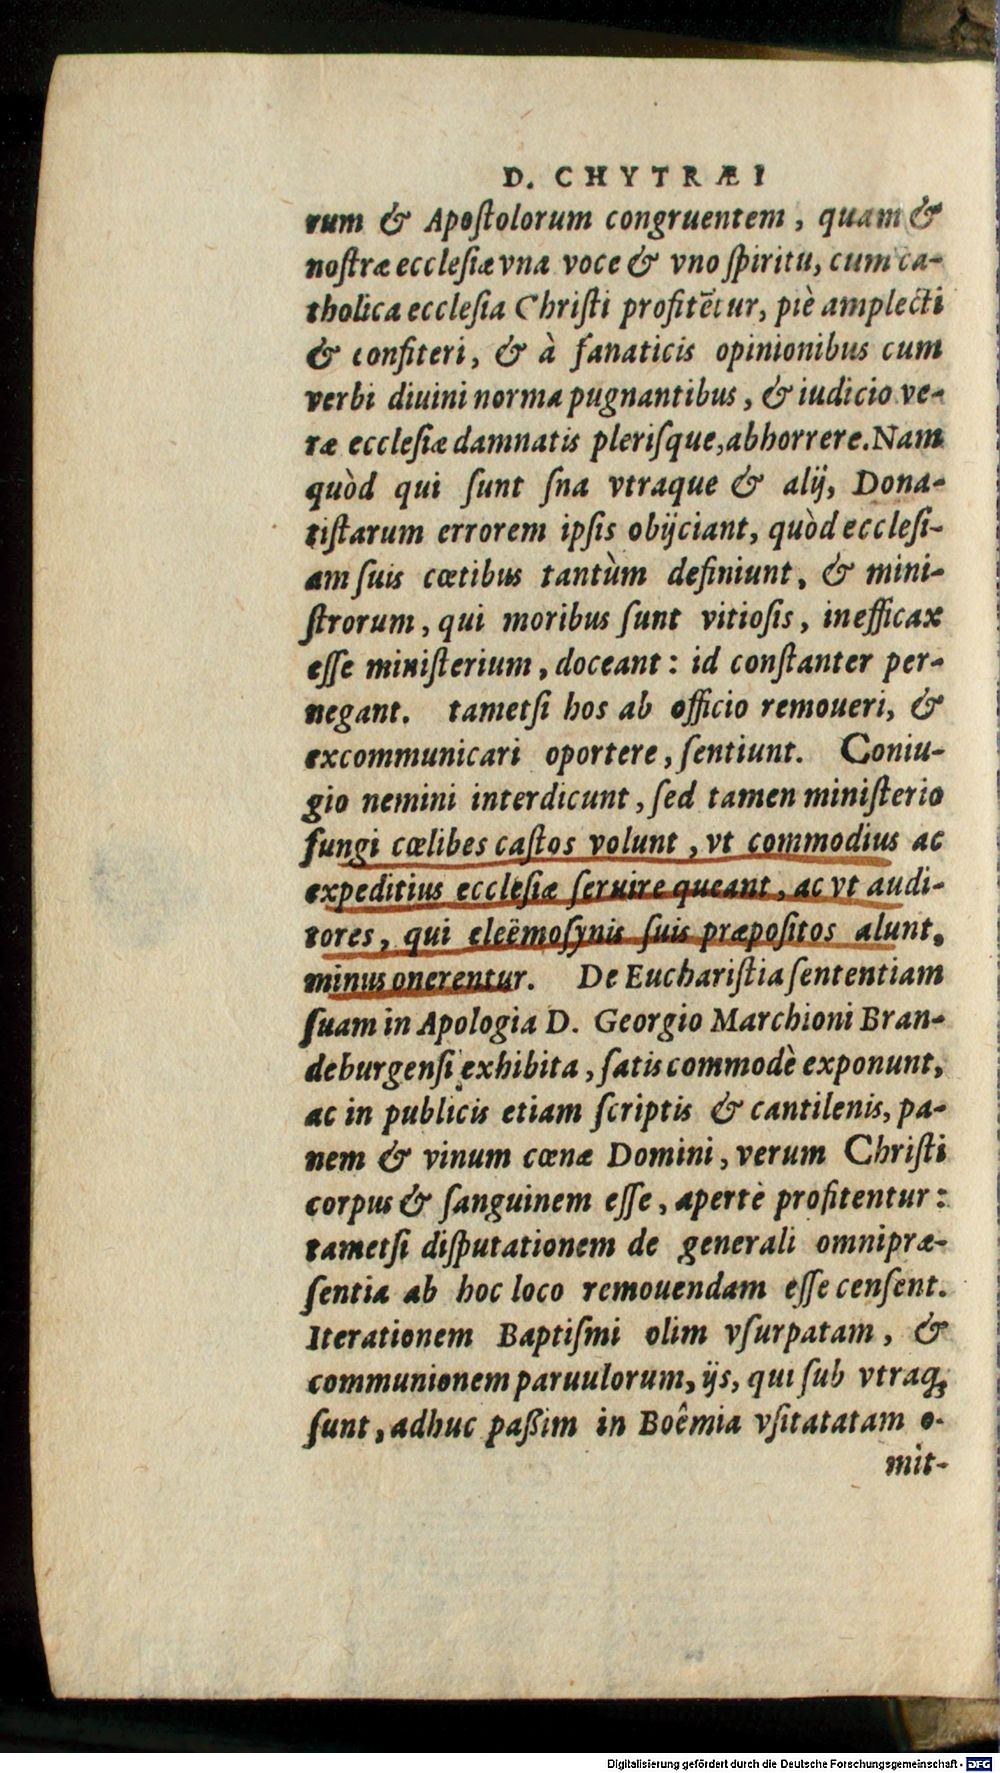 D. CHYTRÆI
rum & Apoſtolorum congruentem, quam &
noſtræ eccleſiæ vna voce & vno ſpiritu, cum ca-
tholica eccleſia Chriſti profitẽtur, piè amplecti
& confiteri, & à fanaticis opinionibus cum
verbi diuini norma pugnantibus, & iudicio ve-
ræ eccleſiæ damnatis pleriſque, abhorrere. Nam
quòd qui ſunt ſna vtraque & alij, Dona-
tiſtarum errorem ipſis obijciant, quòd eccleſi-
am ſuis cœtibus tantùm definiunt, & mini-
ſtrorum, qui moribus ſunt vitioſis, inefficax
eſſe miniſterium, doceant: id conſtanter per-
negant. tametſi hos ab officio remoueri, &
excommunicari oportere, ſentiunt. Coniu-
gio nemini interdicunt, ſed tamen miniſterio
fungi cœlibes caſtos volunt, vt commodius ac
expeditius eccleſiæ ſeruire queant, ac vt audi-
tores, qui eleëmoſynis ſuis præpoſitos alunt,
minus onerentur. De Euchariſtia ſententiam
ſuam in Apologia D. Georgio Marchioni Bran-
deburgenſi exhibita, ſatis commodè exponunt,
ac in publicis etiam ſcriptis & cantilenis, pa-
nem & vinum cœnæ Domini, verum Chriſti
corpus & ſanguinem eſſe, apertè profitentur:
tametſi diſputationem de generali omnipræ-
ſentia ab hoc loco remouendam eſſe cenſent.
Iterationem Baptiſmi olim vſurpatam, &
communionem paruulorum, ijs, qui ſub vtraq;
ſunt, adhuc paßim in Boêmia vſitatatam o-
mit-
Digitalisierung gefördert durch die Deutsche Forschungsgemeinschaft - DFG